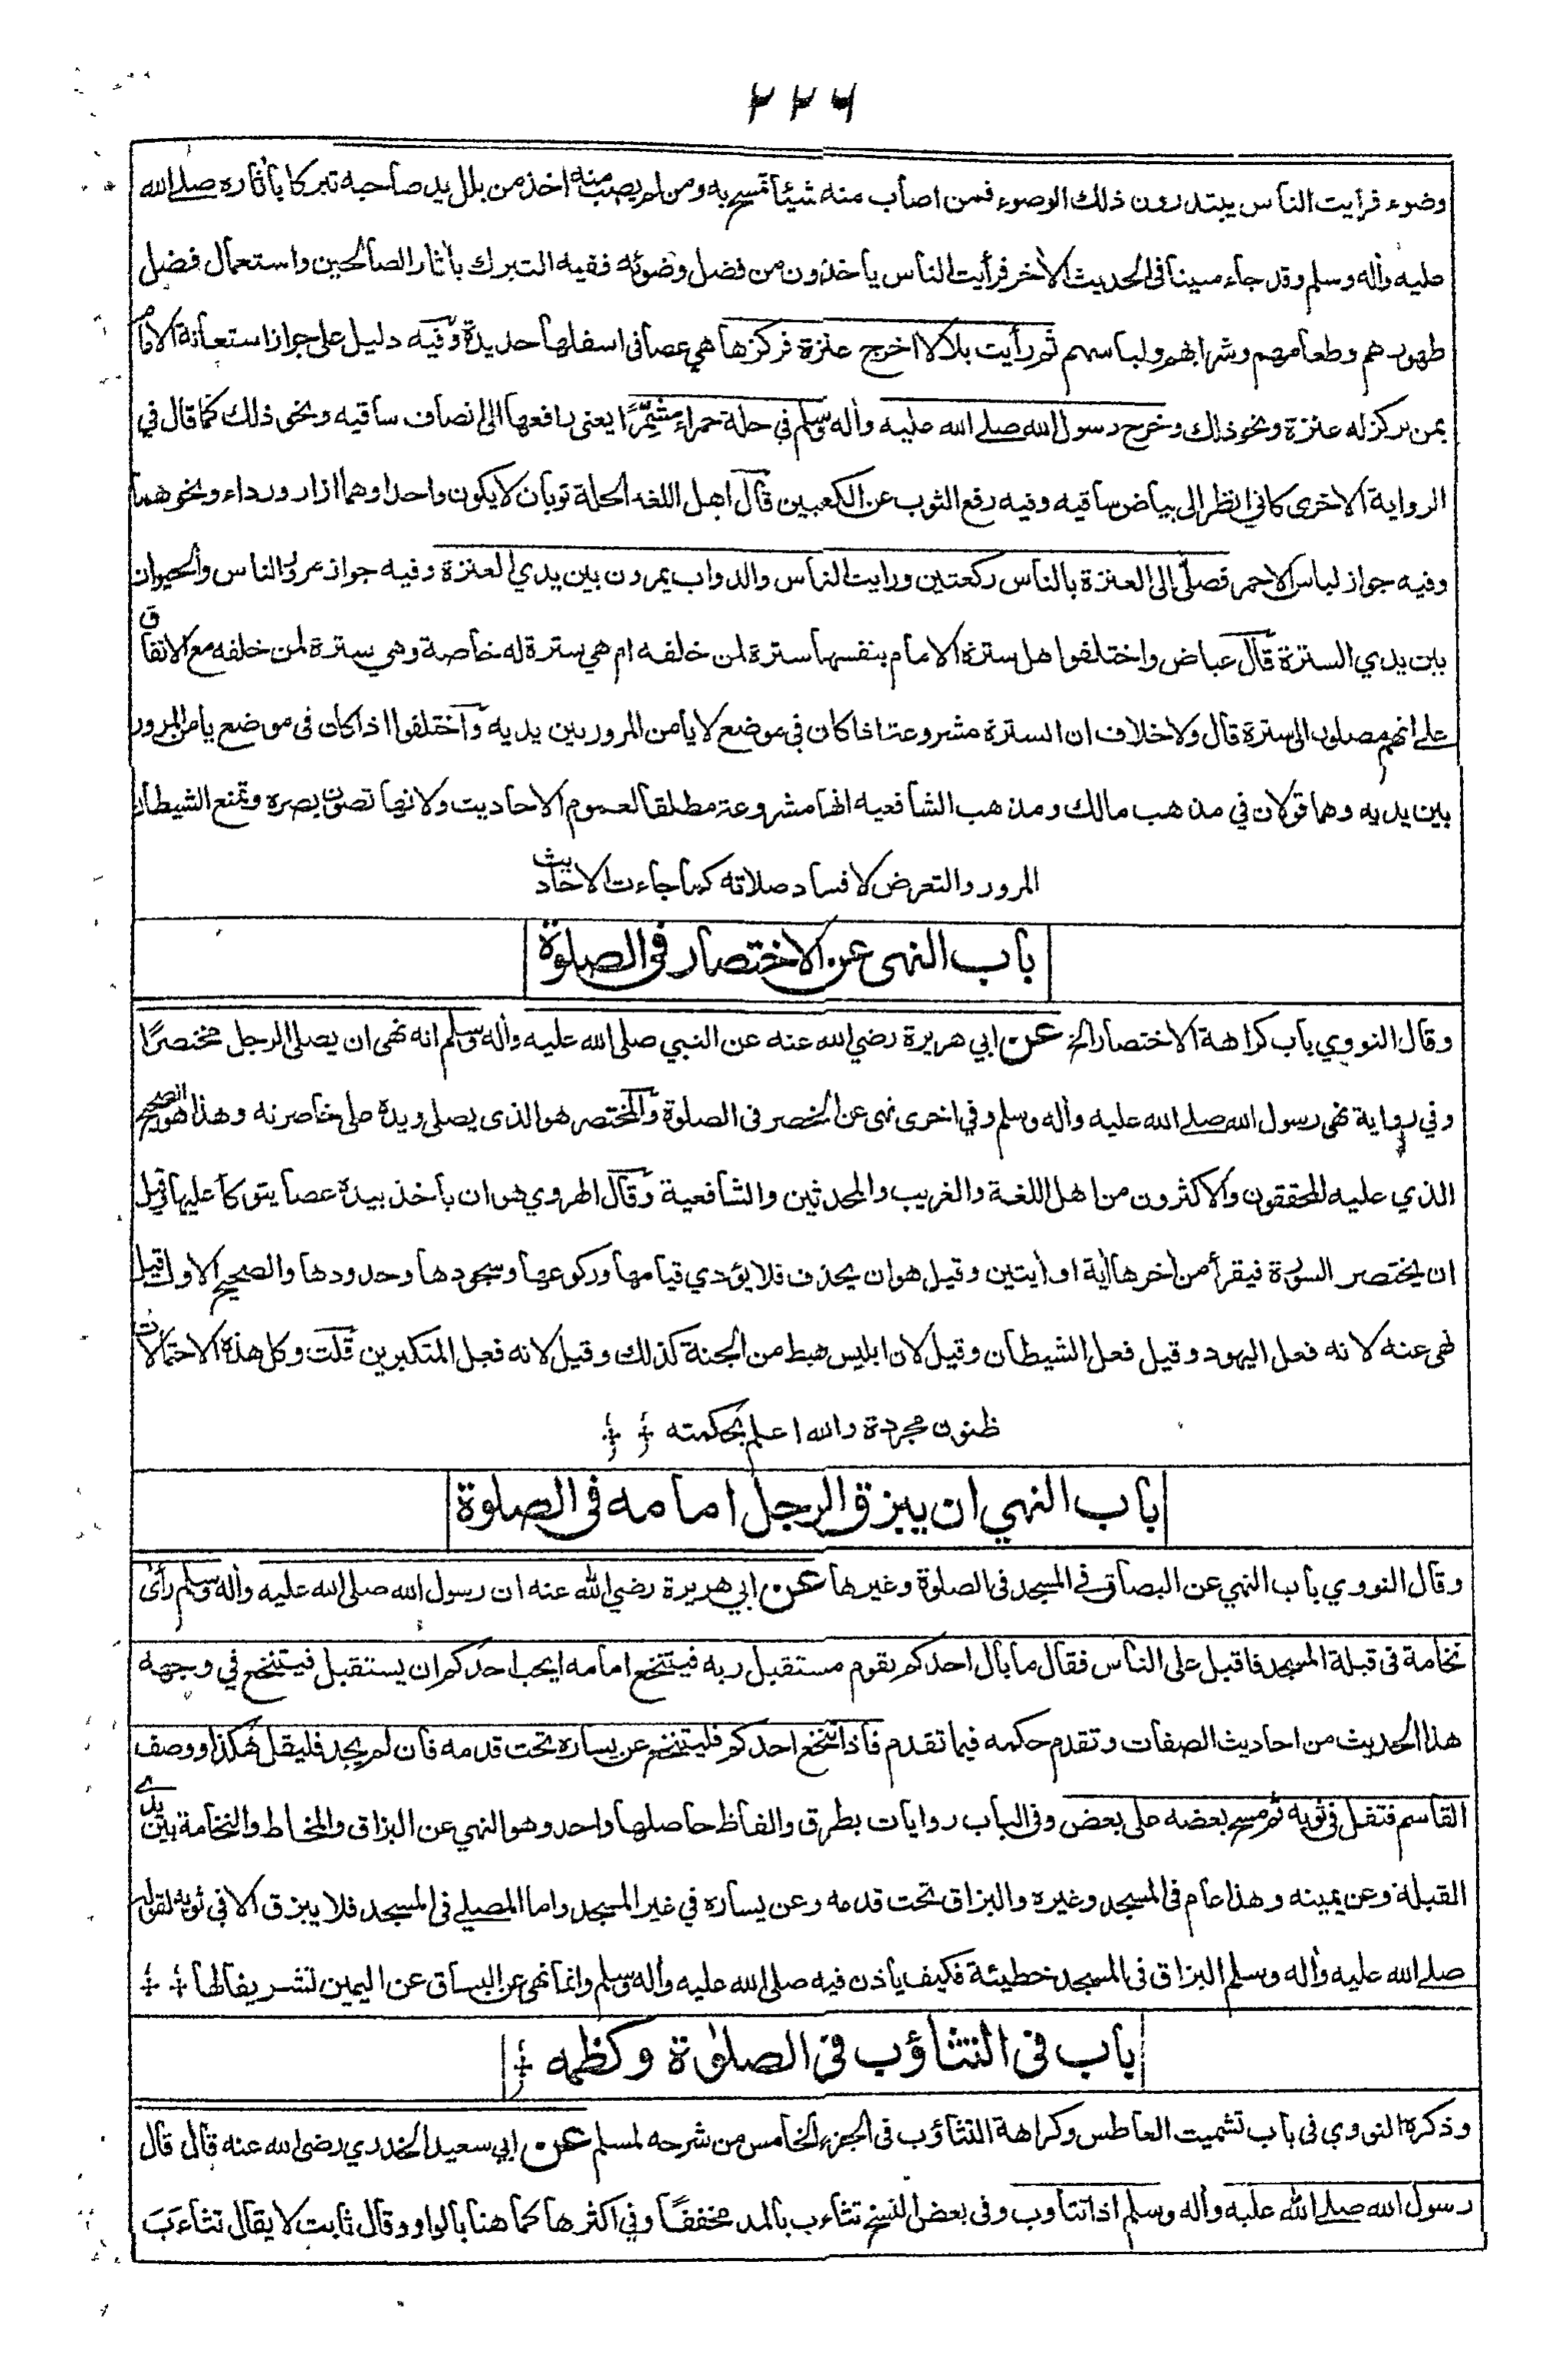 ٢٢٦
وضوء فرايت الناس يبتدرون ذلك الوضوء فمن اصاب منه شيئا تمسح به ومن لم يصب منه اخذ من بلل يد صاحبه تبركا بأثاره صلے الله
عليه وأله وسلم وقد جاء مبينا فى الحديث الأخر فرأيت الناس ياخذون من فضل وضوئه ففيه التبرك بأثار الصالحين واستعمال فضل
طهورهم وطعامهم وشرابهم ولباسهم ثم رأيت بلالا اخرج عنزة فركزها هي عصا فى اسفلها حديدة وفيه دليل على جواز استعانة الامام
بمن يركز له عنزة ونحو ذلك وخرج رسول الله صلے الله عليه وأله وسلم في حلة حمراء مشمّرًا يعنى رافعها الى انصاف ساقيه ونحو ذلك كما قال في
الرواية الاخرى كانى انظر الى بياض ساقيه وفيه رفع الثوب عن الكعبين قال اهل اللغه الحلة ثوبان لا يكون واحدا وهما ازار ورداء ونحوهما
وفيه جواز لباس الاحمر فصلّى الى العنزة بالناس ركعتين ورايت الناس والدواب يمرون بين يدي العنزة وفيه جواز مرور الناس والحيوان
بين يدي السترة قال عياض واختلفوا هل سترة الامام بنفسها سترة لمن خلفه ام هي سترة له خاصة وهي سترة لمن خلفه مع الاتفاق
على انهم مصلون الى سترة قال ولا خلاف ان السترة مشروعة اذا كان في موضع لا يأمن المرور بين يديه واختلفوا اذا كان فى موضع يامن المرور
بين يديه وهما قولان في مذهب مالك ومذهب الشافعيه انها مشروعة مطلقا لعموم الاحاديث ولانها تصون بصره وتمنع الشيطان
المرور والتعرض لافساد صلاته كما جاءت الاحاديث
باب النهى عن الاختصار فى الصلوة
وقال النووي باب كراهة الاختصار الخ عن ابي هريرة رضي الله عنه عن النبي صلى الله عليه وأله وسلم انه نهى ان يصلى الرجل مختصرًا
وفي رواية نهى رسول الله صلے الله عليه وأله وسلم وفي اخرى نهى عن الخصر فى الصلوة والمختصر هو الذى يصلى ويده على خاصرته وهذا هو الصحيح
الذي عليه المحققون والاكثرون من اهل اللغة والغريب والمحدثين والشافعية وقال الهروي هو ان ياخذ بيده عصا يتوكأ عليها قيل
ان يختصر السورة فيقرأ من أخرها أية او أيتين وقيل هو ان يحذف فلا يؤدي قيامها وركوعها وسجودها وحدودها والصحيح الاول قيل
نهى عنه لانه فعل اليهود وقيل فعل الشيطان وقيل لان ابليس هبط من الجنة كذلك وقيل لانه فعل المتكبرين قلت وكل هذه الاحتمالات
ظنون مجردة والله اعلم بحكمته
باب النهي ان يبزق الرجل امامه فى الصلوة
وقال النووي باب النهي عن البصاق فے المسجد فى الصلوة وغيرها عن ابي هريرة رضي الله عنه ان رسول الله صلى الله عليه وأله وسلم رأى
نخامة فى قبلة المسجد فاقبل على الناس فقال ما بال احدكم يقوم مستقبل ربه فيتنخع امامه ايحب احدكم ان يستقبل فيتنخع في وجهه
هذا الحديث من احاديث الصفات وتقدم حكمه فيما تقدم فاذا تنخع احدكم فليتنخع عن يساره تحت قدمه فان لم يجد فليقل هكذا ووصف
القاسم فتفل فى ثوبه ثم مسح بعضه على بعض وفى الباب روايات بطرق والفاظ حاصلها واحد وهو النهي عن البزاق والمخاط والنخامة بين يدے
القبلة وعن يمينه وهذا عام فى المسجد وغيره والبزاق تحت قدمه وعن يساره في غير المسجد واما المصلے فى المسجد فلا يبزق الا في ثوبه لقوله
صلے الله عليه وأله وسلم البزاق فى المسجد خطيئة فكيف ياذن فيه صلى الله عليه وأله وسلم وانما نهى عن البساق عن اليمين تشريفا لها
باب فى التثاؤب فى الصلوٰة وكظمه
وذكره النووي فى باب تشميت العاطس وكراهة التثاؤب فى الجزء الخامس من شرحه لمسلم عن ابي سعيد الخدري رضى الله عنه قال قال
رسول الله صلے الله عليه وأله وسلم اذا تثاوب وفى بعض النسخ تثاءب بالمد مخففًا وفي اكثرها كما هنا بالواو وقال ثابت لا يقال تثاءَبَ